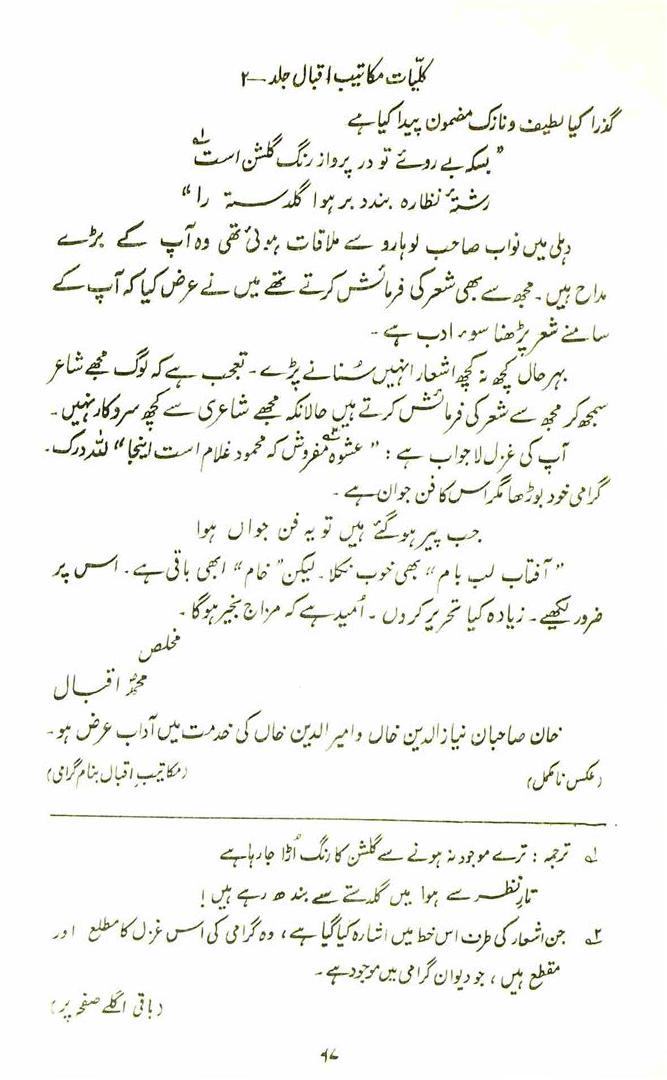 کلّیات مکاتیب اقبال جلد ـ ۲
گذرا کیا لطیف و نازک مضمون پیدا کیا ہے
" بسکہ بے روئے تو در پرواز رنگ گلشن است؎۱
رشتۂ نظارہ بندد بر ہوا گلدستہ را "
دہلی میں نواب صاحب لوہارو سے ملاقات ہوئی تھی وہ آپ کے بڑے
مداح ہیں ۔ مجھ سے بھی شعر کی فرمائش کرتے تھے میں نے عرض کیا کہ آپ کے
سامنے شعر پڑھنا سوء ادب ہے ۔
بہر حال کچھ نہ کچھ اشعار انہیں سُنانے پڑے ۔ تعجب ہے کہ لوگ مجھے شاعر
سمجھ کر مجھ سے شعر کی فرمائش کرتے ہیں حالانکہ مجھے شاعری سے کچھ سروکار نہیں ۔
آپ کی غزل لاجواب ہے : " عشوہ؎۲ مفروش کہ محمود غلام است اینجا " للہ درک ۔
گرامی خود بوڑھا مگر اس کا فن جوان ہے ۔
جب پیر ہوگئے ہیں تو یہ فن جواں ہوا
" آفتاب لب بام " بھی خوب نکلا ۔ لیکن " خام " ابھی باقی ہے ۔ اس پر
ضرور لکھیے ۔ زیادہ کیا تحریر کروں ۔ اُمید ہے کہ مزاج بخیر ہوگا ۔
مخلص
محمدؐ اقبال
خان صاحبان نیاز الدین خاں و امیر الدین خاں کی خدمت میں آداب عرض ہو ۔
(عکس نامکمل) (مکاتیبِ اقبال بنام گرامی)
؎۱ ترجمہ : ترے موجود نہ ہونے سے گلشن کا رنگ اُڑا جا رہا ہے
تارِ نظر سے ہوا میں گلدستے سے بندھ رہے ہیں !
؎۲ جن اشعار کی طرف اس خط میں اشارہ کیا گیا ہے ، وہ گرامی کی اس غزل کا مطلع اور
مقطع ہیں ، جو دیوان گرامی میں موجود ہے ۔
(باقی اگلے صفحہ پر)
۹۷